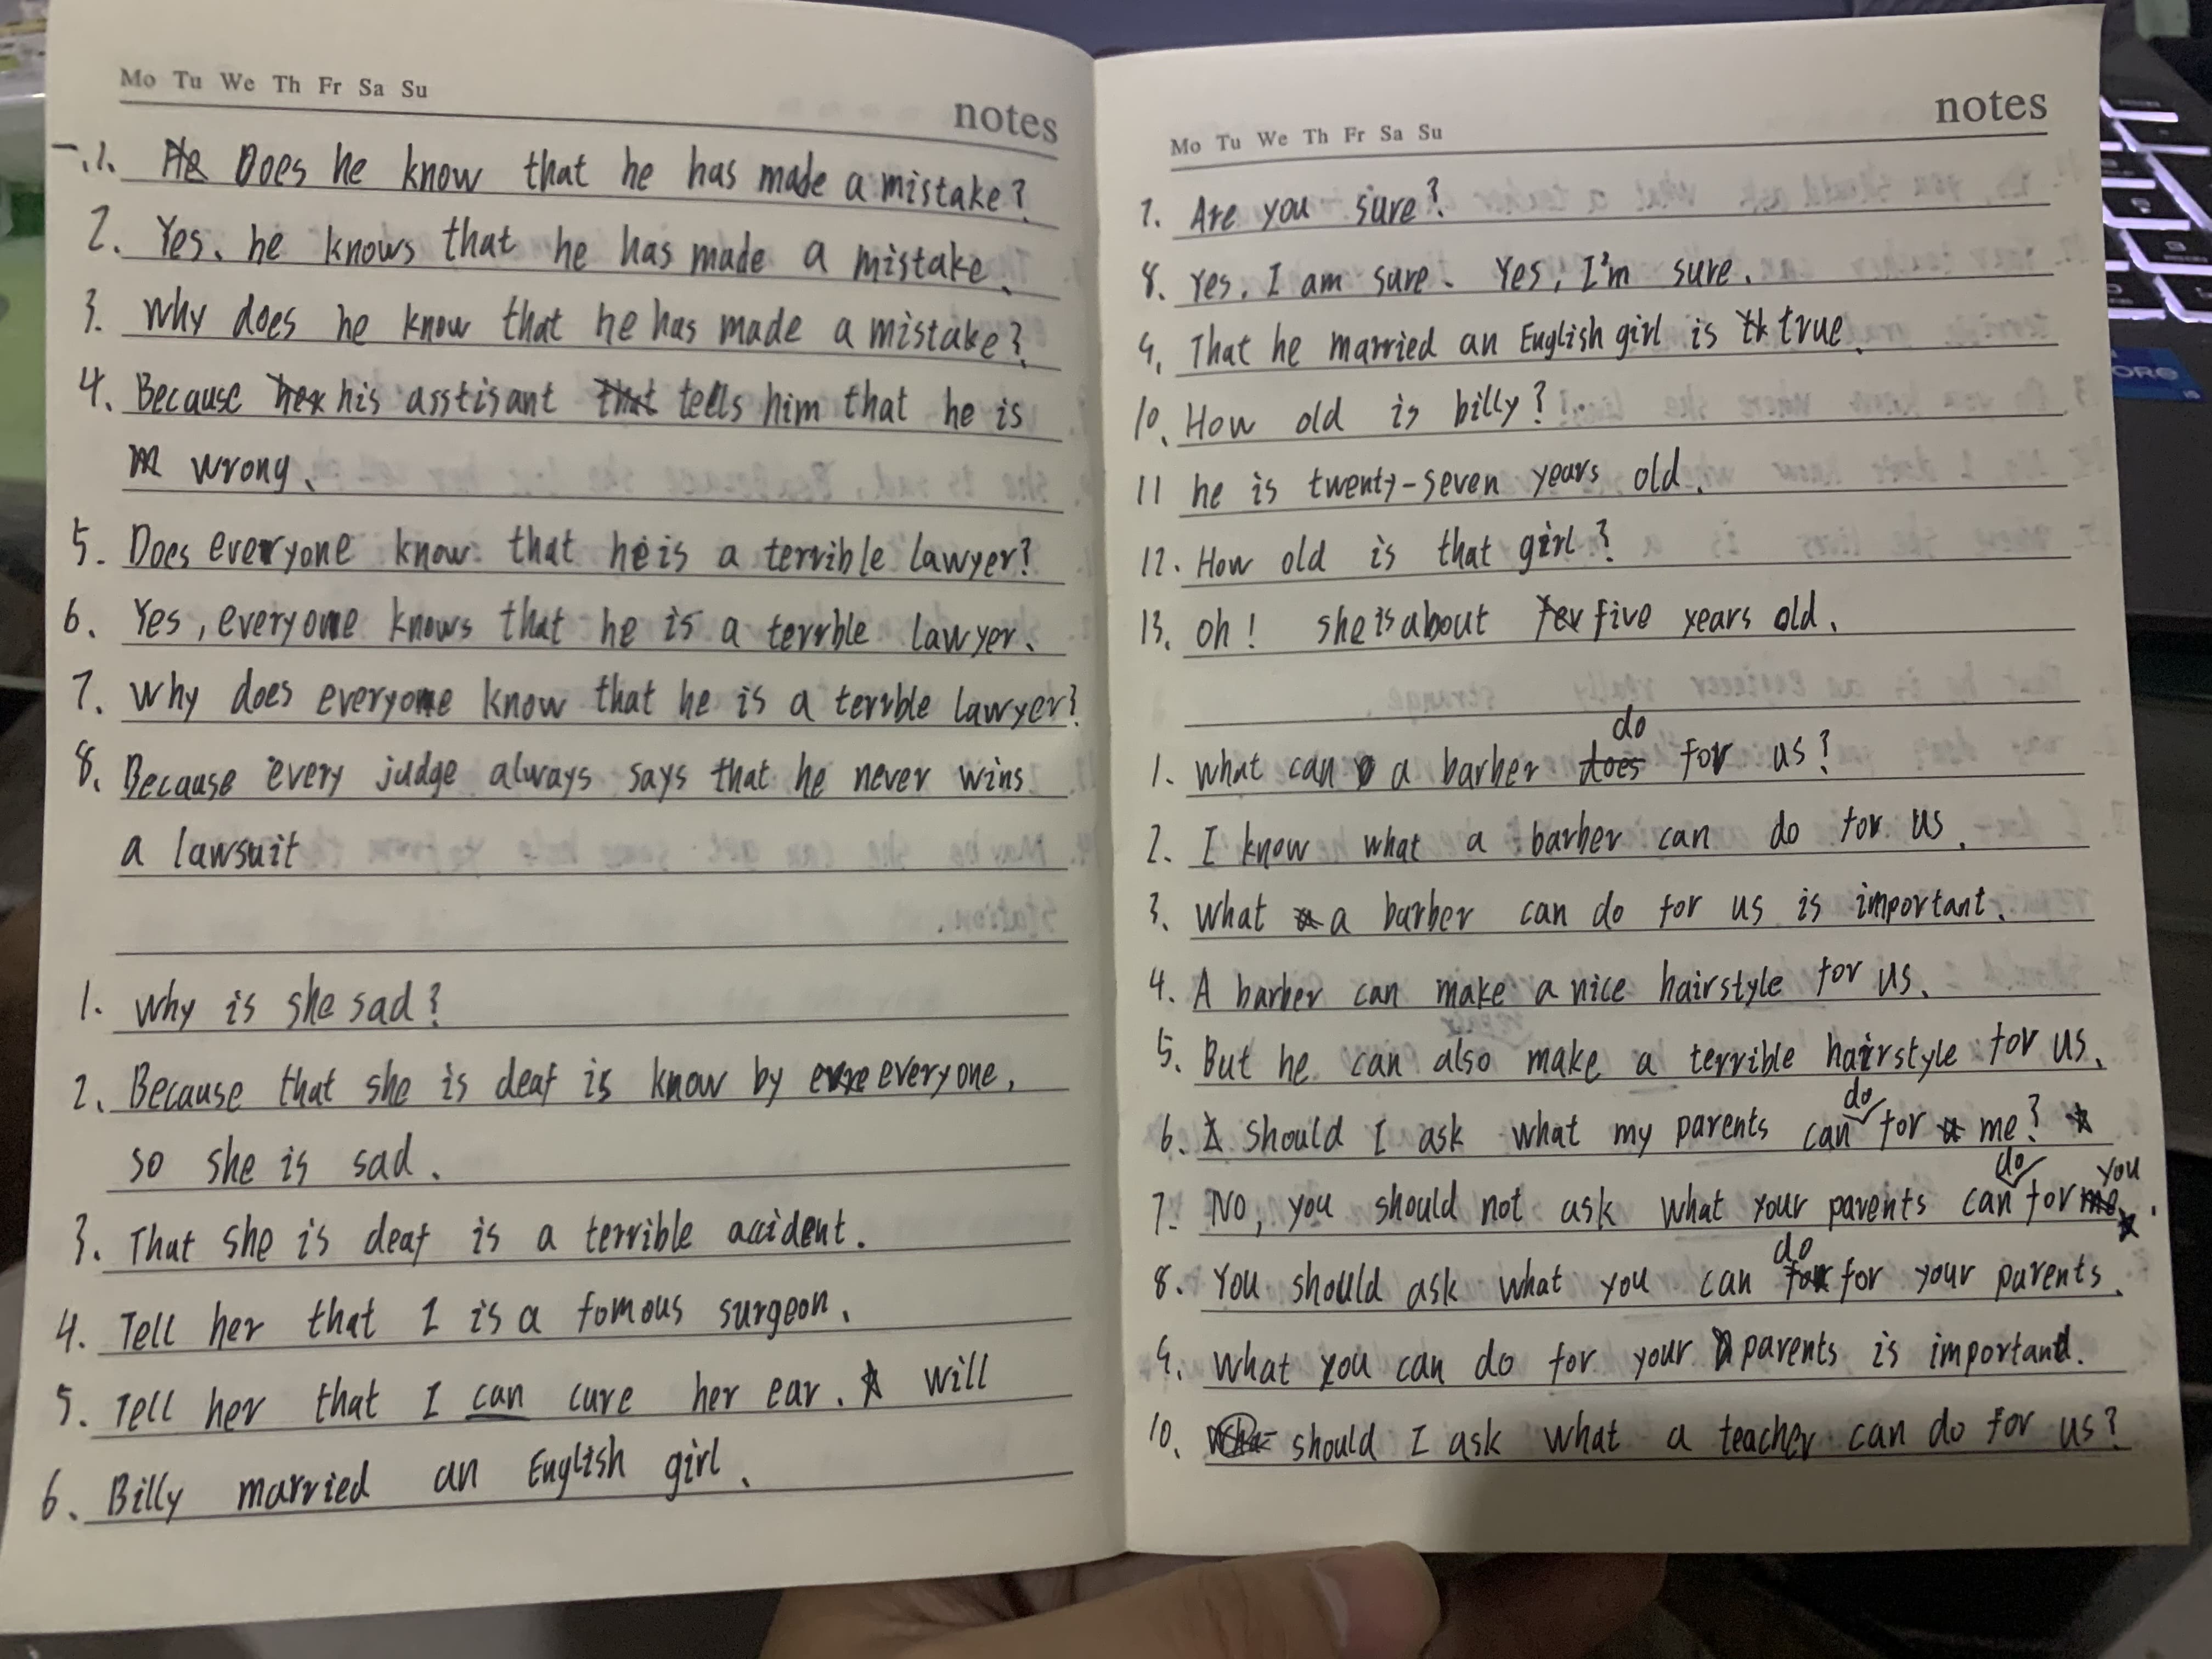 Mo Tu We Th Fr Sa Su
notes
一.1. He Does he know that he has made a mistake?
2. Yes, he knows that he has made a mistake.
3. Why does he know that he has made a mistake?
4. Because her his asstisant that tells him that he is
wrong.
5. Does everyone know that he is a terrible lawyer?
6. Yes, everyone knows that he is a terrble lawyer.
7. Why does everyone know that he is a terrble lawyer?
8. Because every judge always says that he never wins
a lawsuit
1. Why is she sad?
2. Because that she is deaf is know by evre everyone,
so she is sad.
3. That she is deaf is a terrible accident.
4. Tell her that I is a fomous surgeon.
5. Tell her that I can cure her ear. will
6. Billy married an English girl.
Mo Tu We Th Fr Sa Su
notes
7. Are you sure?
8. Yes, I am sure. Yes, I'm sure.
9. That he married an English girl is th true.
10. How old is billy?
11 he is twenty-seven years old.
12. How old is that girl?
13. oh! she is about fev five years old.
do
1. what can a barber does for us?
2. I know what a barber can do for us.
3. what a barber can do for us is important.
4. A barber can make a nice hairstyle for us.
5. But he can also make a terrible hairstyle for us.
do
6. should I ask what my parents can for me?
do you
7. No, you should not ask what your parents can for me.
do
8. You should ask what you can for for your parents.
9. what you can do for your parents is important.
10. should I ask what a teacher can do for us?